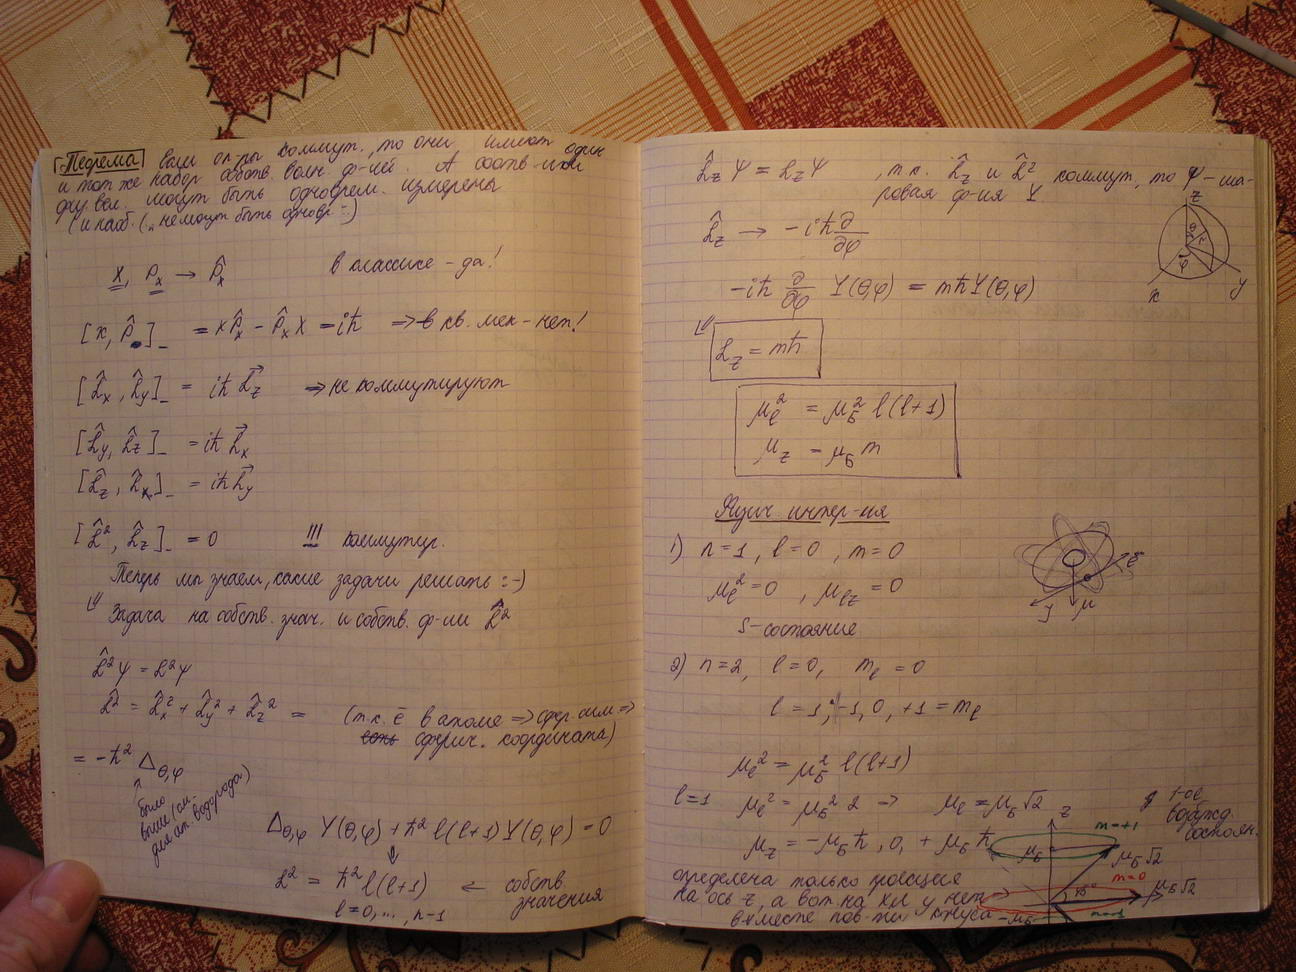 Теорема Если оп-ры коммут., то они имеют один
и тот же набор собств. волн. ф-ций. А соотв-щие
физ. вел. могут быть одноврем. измерены
(и наоб. („не могут быть одновр :-)
x, Pₓ → P̂ₓ в классике - да!
[x, P̂ ]₋ = xP̂ₓ - P̂ₓx = iħ ⇒ в кв. мех - нет!
[L̂ₓ, L̂y]₋ = iħL⃗z ⇒ не коммутируют
[L̂y, L̂z]₋ = iħL⃗ₓ
[L̂z, L̂ₓ]₋ = iħL⃗y
[L̂², L̂z]₋ = 0 !!! коммутир.
Теперь мы знаем, какие задачи решать :-)
Задача на собств. знач. и собств. ф-ии L̂²
L̂²ψ = L²ψ
L̂² = L̂ₓ² + L̂y² + L̂z² = (т.к. ē в атоме ⇒ сфер. сим ⇒
сферич. координата)
= -ħ² Δθ,φ
↑ было
выше (см.
для ат. водорода)
Δθ,φ Y(θ,φ) + ħ² l(l+1) Y(θ,φ) = 0
⇓
L² = ħ² l(l+1) ← собств.
значения
l = 0,..., n-1
L̂z ψ = Lz ψ , т.к. L̂z и L̂² коммут, то ψ - ша-
ровая ф-ия Y
L̂z → -iħ ∂/∂φ
z
θ
r
φ
x
y
-iħ ∂/∂φ Y(θ,φ) = mħY(θ,φ)
Lz = mħ
μl² = μБ² l(l+1)
μz = μБ m
Физич. интер-ия
1) n=1, l=0, m=0
μl² = 0 , μlz = 0
ē
μ
S-состояние
2) n=2, l=0, ml = 0
l = 1; -1, 0, +1 = ml
μl² = μБ² l(l+1)
l=1 μl² = μБ² 2 → μl = μБ√2
1-ое
возбужд.
состоян.
μz = -μБħ, 0, +μБħ
z
m=+1
μБ
μБ√2
m=0
45°
μБ√2
определена только проекция
на ось z, а вот на x и y нет
вместе пов-ти конуса
-μБ